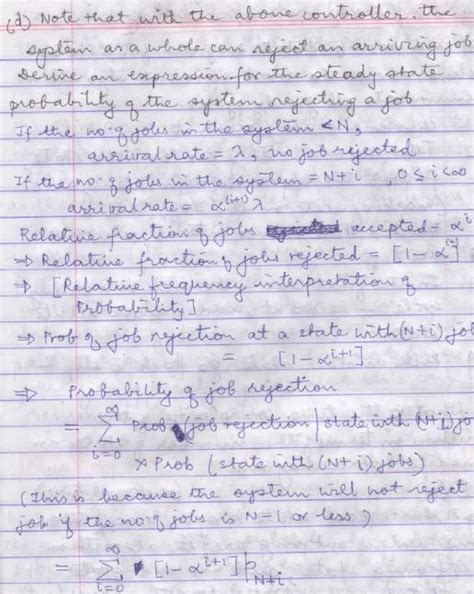 (d) Note that with the above controller, the
system as a whole can reject an arriving job
Derive an expression for the steady state
probability of the system rejecting a job
If the no. of jobs in the system < N,
arrival rate = λ, no job rejected
If the no. of jobs in the system = N+i , 0 ≤ i < ∞
arrival rate = α^(i+1) λ
Relative fraction of jobs accepted = α^i
⇒ Relative fraction of jobs rejected = [1 - α^i]
⇒ [Relative frequency interpretation of
Probability]
⇒ Prob of job rejection at a state with (N+i) jo
= [1 - α^(i+1)]
⇒ Probability of job rejection
= ∑_(i=0)^∞ Prob (job rejection | state with (N+i) jo
× Prob (state with (N+i) jobs)
(This is because the system will not reject
job if the no. of jobs is N-1 or less)
= ∑_(i=0)^∞ [1 - α^(i+1)] p_(N+i)